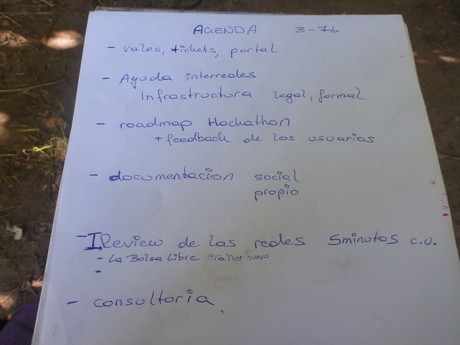 AGENDA 3-7h
- vales, tickets, portal
- Ayuda interredes
Infrastructura legal, formal
- roadmap Hackathon
+ feedback de los usuarios
- documentacion social
propio
- I Review de las redes 5minutos c.u.
- La Bolsa Libre Taller nuevo
-
- consultoria